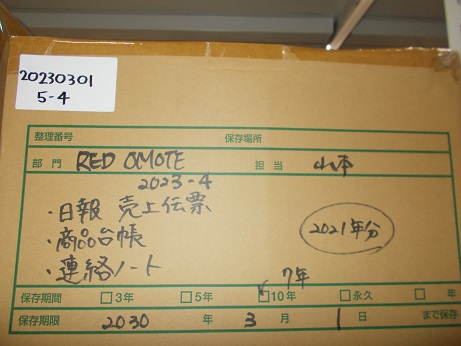 20230301
5-4
整理番号 保存場所
部門 RED OMOTE 担当 山本
2023-4
・日報 売上伝票
・商品台帳
2021年分
・連絡ノート
7年
保存期間 □3年 □5年 □10年 □永久 □ 年
保存期限 2030 年 3 月 1 日 まで保存